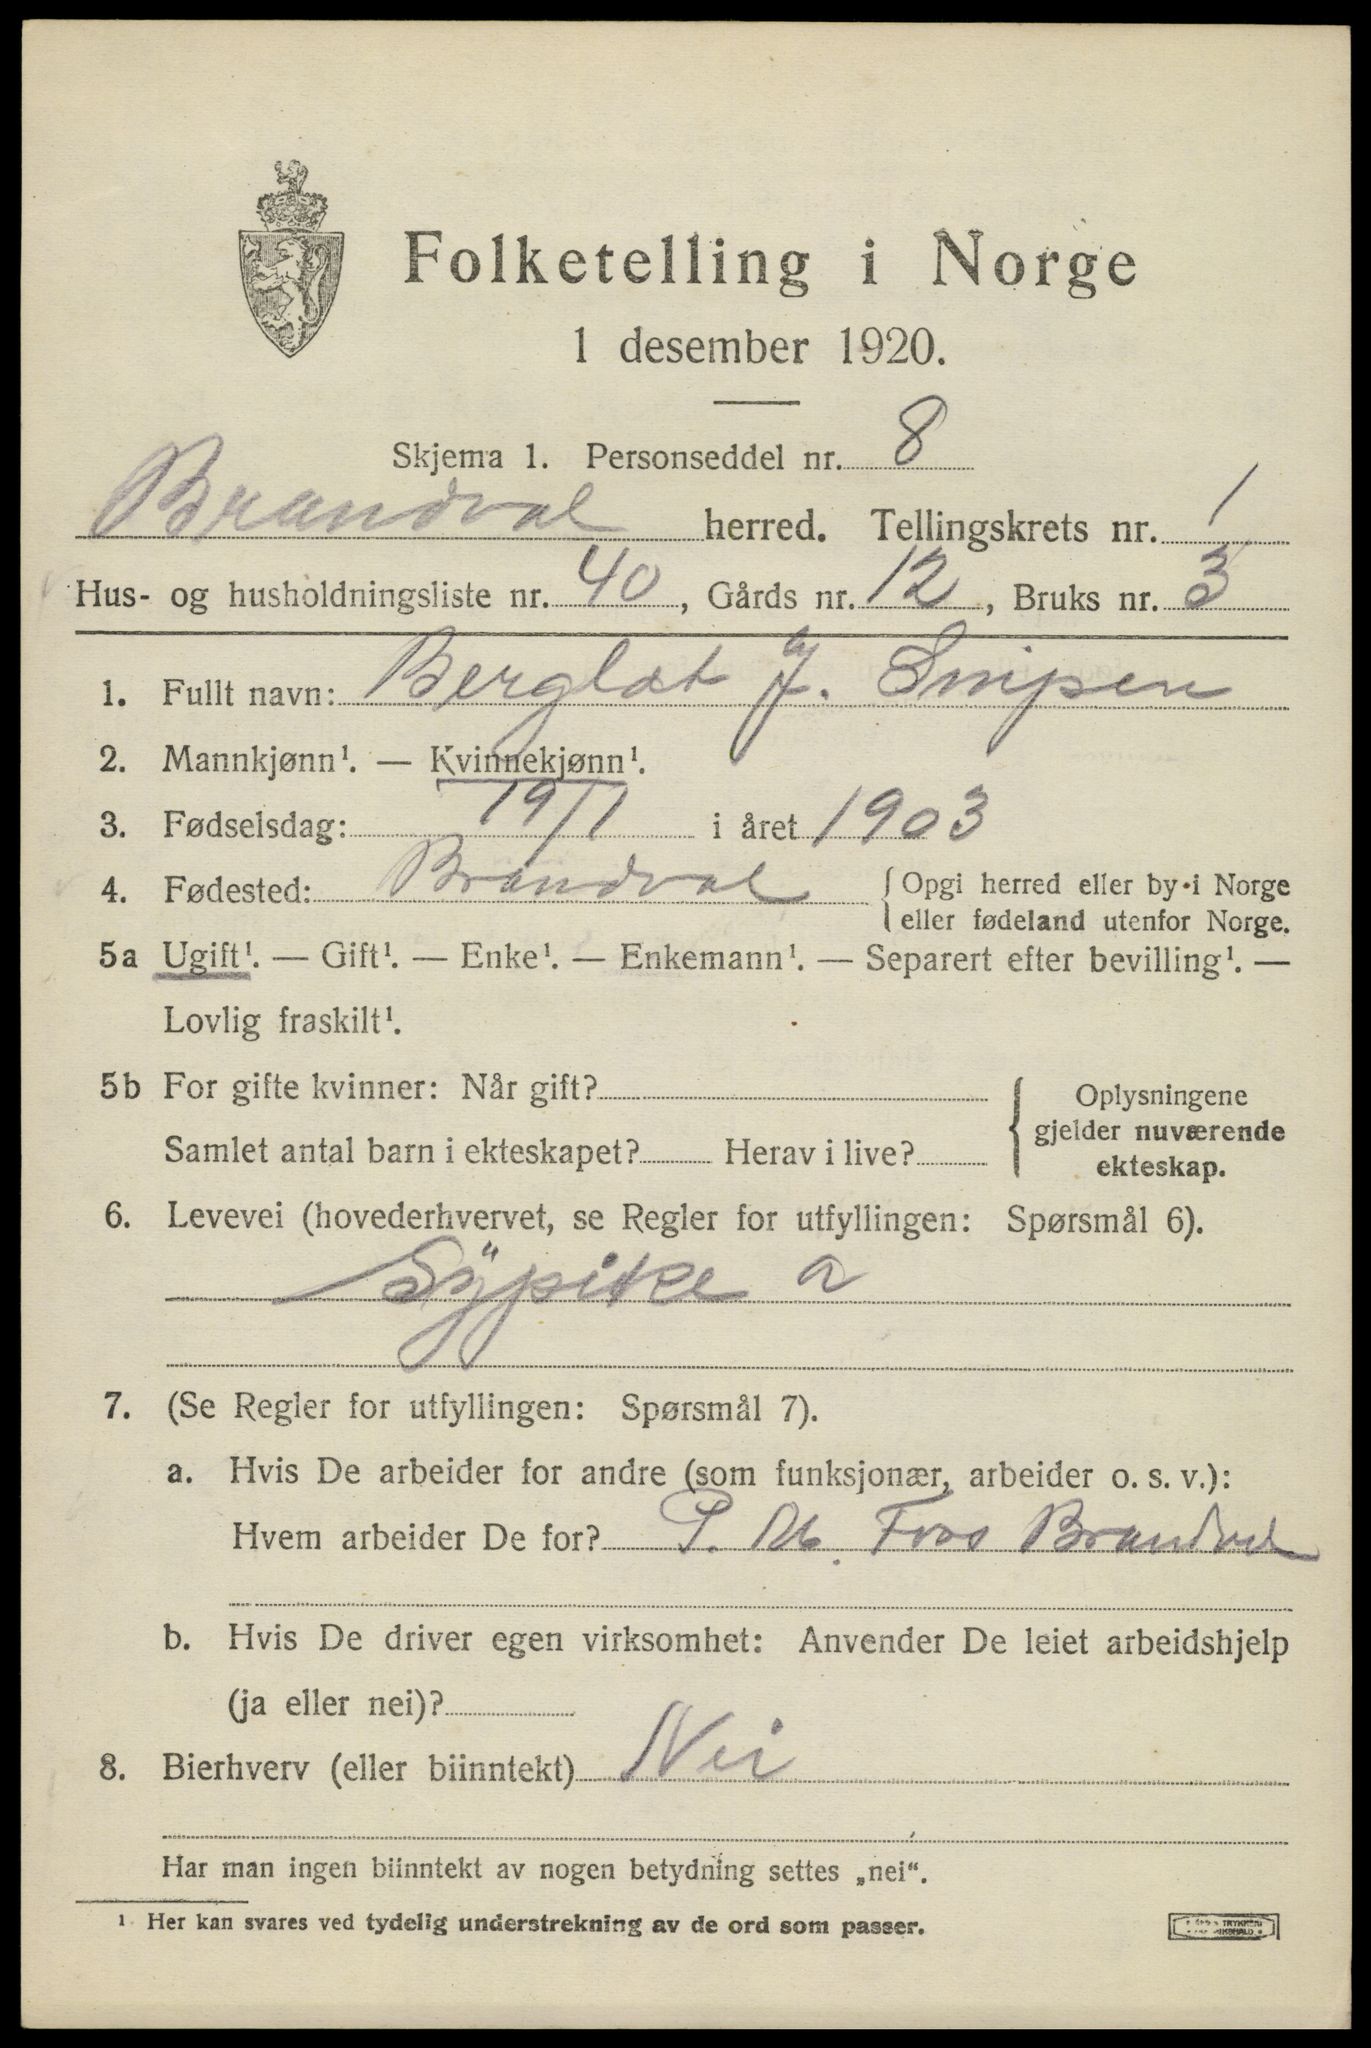 Folketelling i Norge
1 desember 1920.
Skjema 1. Personseddel nr. 8
Brandval herred. Tellingskrets nr. 1
Hus- og husholdningsliste nr. 40, Gårds nr. 12, Bruks nr. 3
1. Fullt navn: Berglat J. Snipen
2. Mannkjønn¹. — Kvinnekjønn¹.
3. Fødselsdag: 19/1 i året 1903
4. Fødested: Brandval {Opgi herred eller by i Norge
eller fødeland utenfor Norge.
5a Ugift¹. — Gift¹. — Enke¹. — Enkemann¹. — Separert efter bevilling¹. —
Lovlig fraskilt¹.
5b For gifte kvinner: Når gift?
Samlet antal barn i ekteskapet? Herav i live?
{Oplysningene
gjelder nuværende
ekteskap.
6. Levevei (hovederhvervet, se Regler for utfyllingen: Spørsmål 6).
Sÿpike a
7. (Se Regler for utfyllingen: Spørsmål 7).
a. Hvis De arbeider for andre (som funksjonær, arbeider o. s. v.):
Hvem arbeider De for? P. M. Foos Brandval
b. Hvis De driver egen virksomhet: Anvender De leiet arbeidshjelp
(ja eller nei)?
8. Bierhverv (eller biinntekt) Nei
Har man ingen biinntekt av nogen betydning settes „nei“.
¹ Her kan svares ved tydelig understrekning av de ord som passer.